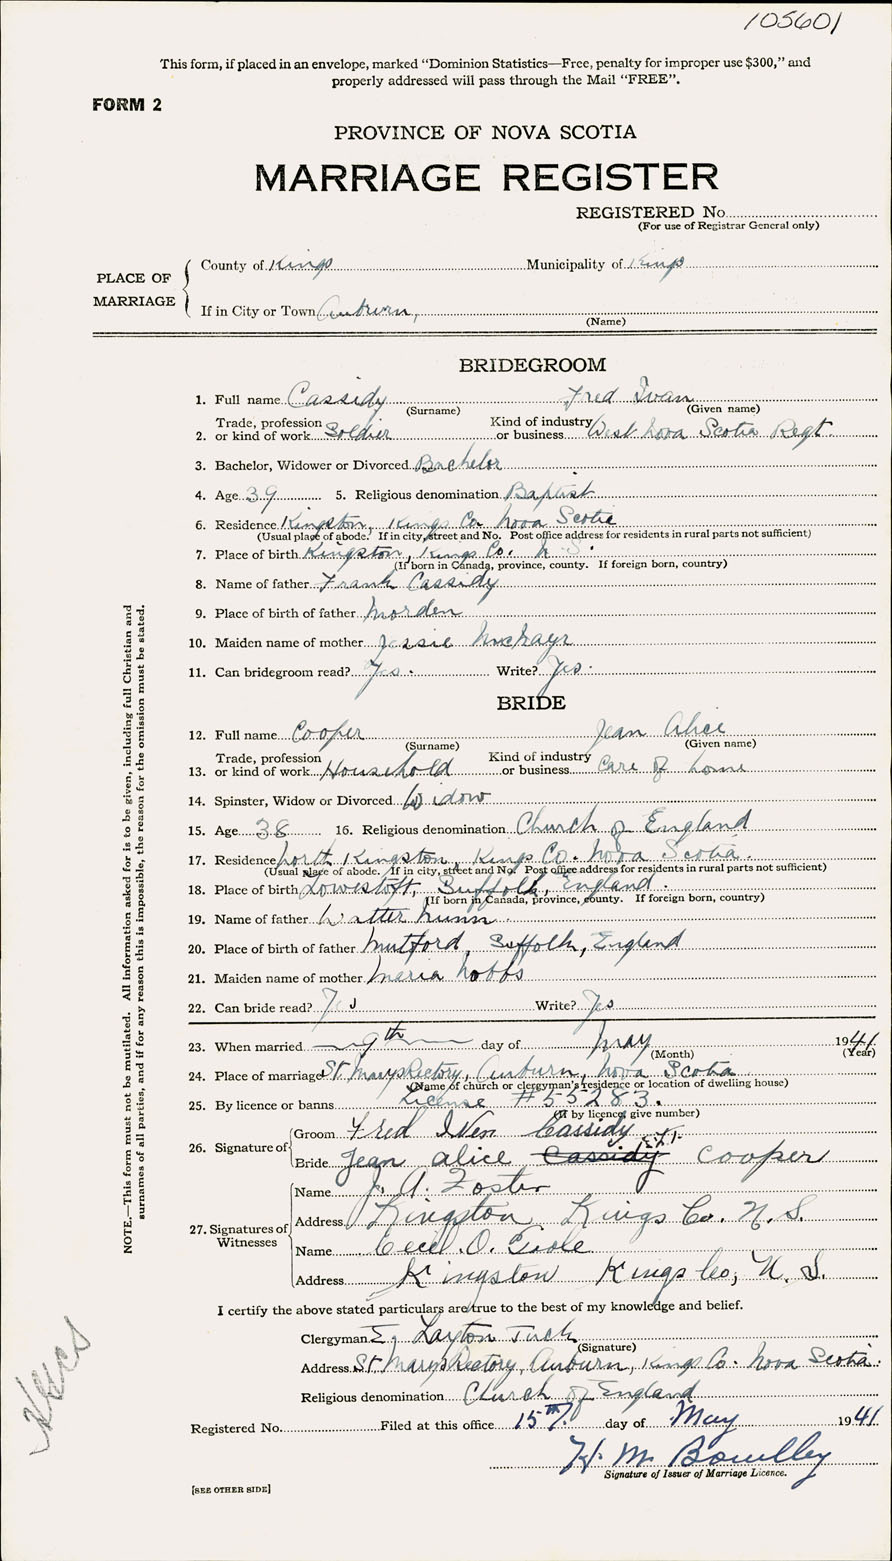 105601
This form, if placed in an envelope, marked "Dominion Statistics—Free, penalty for improper use $300," and
properly addressed will pass through the Mail "FREE".
FORM 2
PROVINCE OF NOVA SCOTIA
MARRIAGE REGISTER
REGISTERED No.
(For use of Registrar General only)
PLACE OF MARRIAGE
County of Kings Municipality of Kings
If in City or Town Auburn,
(Name)
BRIDEGROOM
1. Full name Cassidy Fred Ivan
(Surname) (Given name)
2. Trade, profession or kind of work Soldier Kind of industry or business West Nova Scotia Regt.
3. Bachelor, Widower or Divorced Bachelor
4. Age 39 5. Religious denomination Baptist
6. Residence Kingston, Kings Co. Nova Scotia
(Usual place of abode. If in city, street and No. Post office address for residents in rural parts not sufficient)
7. Place of birth Kingston, Kings Co. N.S.
(If born in Canada, province, county. If foreign born, country)
8. Name of father Frank Cassidy
9. Place of birth of father Morden
10. Maiden name of mother Jessie
11. Can bridegroom read? Yes. Write? Yes.
BRIDE
12. Full name Cooper Jean Alice
(Surname) (Given name)
13. Trade, profession or kind of work Household Kind of industry or business Care of home
14. Spinster, Widow or Divorced Widow
15. Age 38 16. Religious denomination Church of England
17. Residence North Kingston, Kings Co. Nova Scotia.
(Usual place of abode. If in city, street and No. Post office address for residents in rural parts not sufficient)
18. Place of birth Lowestoft, Suffolk, England.
(If born in Canada, province, county. If foreign born, country)
19. Name of father Walter Nunn
20. Place of birth of father Mutford, Suffolk, England
21. Maiden name of mother Maria Hobbs
22. Can bride read? Yes Write? Yes
23. When married 9th day of May 1941
(Month) (Year)
24. Place of marriage St Marys Rectory, Auburn, Nova Scotia
(Name of church or clergyman's residence or location of dwelling house)
25. By licence or banns License #55283.
(If by licence, give number)
26. Signature of
Groom Fred Iven Cassidy
Bride Jean Alice Cassidy E.L.T. Cooper
27. Signatures of Witnesses
Name J. A. Foster
Address Kingston Kings Co. N.S.
Name Cecil O.
Address Kingston Kings Co; N.S.
I certify the above stated particulars are true to the best of my knowledge and belief.
Clergyman E. Layton Tuck
(Signature)
Address St Marys Rectory, Auburn, Kings Co. Nova Scotia.
Religious denomination Church of England
Registered No. Filed at this office 15th day of May 1941
H. M.
Signature of Issuer of Marriage Licence.
[SEE OTHER SIDE]
NOTE.—This form must not be mutilated. All information asked for is to be given, including full Christian and
surnames of all parties, and if for any reason this is impossible, the reason for the omission must be stated.